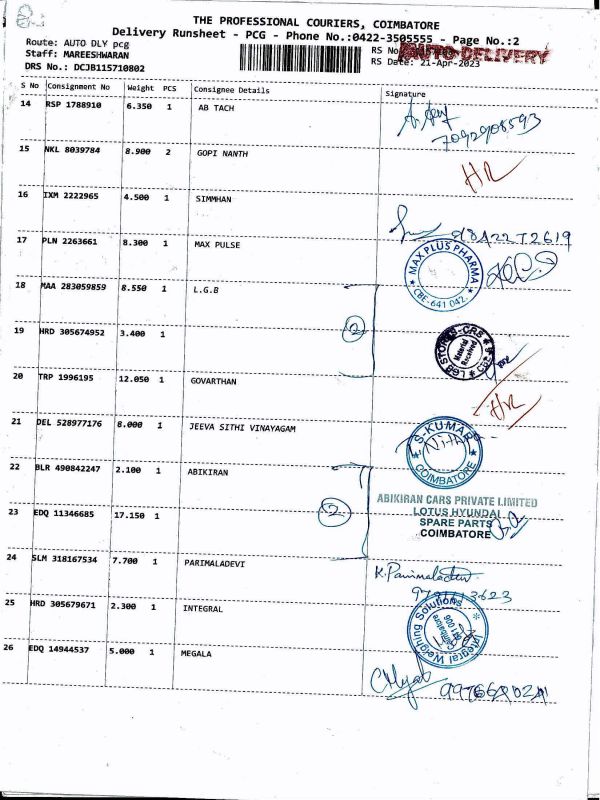 THE PROFESSIONAL COURIERS, COIMBATORE
Delivery Runsheet - PCG - Phone No.:0422-3505555 - Page No.:2
Route: AUTO DLY pcg
RS No
AUTO DELIVERY
Staff: MAREESHWARAN
RS Date: 21-Apr-2023
DRS No.: DCJB115710802
S No Consignment No Weight PCS Consignee Details Signature
14 RSP 1788910 6.350 1 AB TACH
7092908593
15 NKL 8039784 8.900 2 GOPI NANTH HR
16 IXM 2222965 4.500 1 SIMMHAN
17 PLN 2263661 8.300 1 MAX PULSE
MAX PLUS PHARMA
CBE-641 042.
18 MAA 283059859 8.550 1 L.G.B
2
19 HRD 305674952 3.400 1
LGB STORES-CRS
Material
Received
20 TRP 1996195 12.050 1 GOVARTHAN HR
21 DEL 528977176 8.000 1 JEEVA SITHI VINAYAGAM
S-KUMAR
COIMBATORE
22 BLR 490842247 2.100 1 ABIKIRAN
2
ABIKIRAN CARS PRIVATE LIMITED
LOTUS HYUNDAI
SPARE PARTS
COIMBATORE
23 EDQ 11346685 17.150 1
24 SLM 318167534 7.700 1 PARIMALADEVI
K. Parimaladevi
25 HRD 305679671 2.300 1 INTEGRAL
Integral Weighing Solutions
Coimbatore
641 006
26 EDQ 14944537 5.000 1 MEGALA